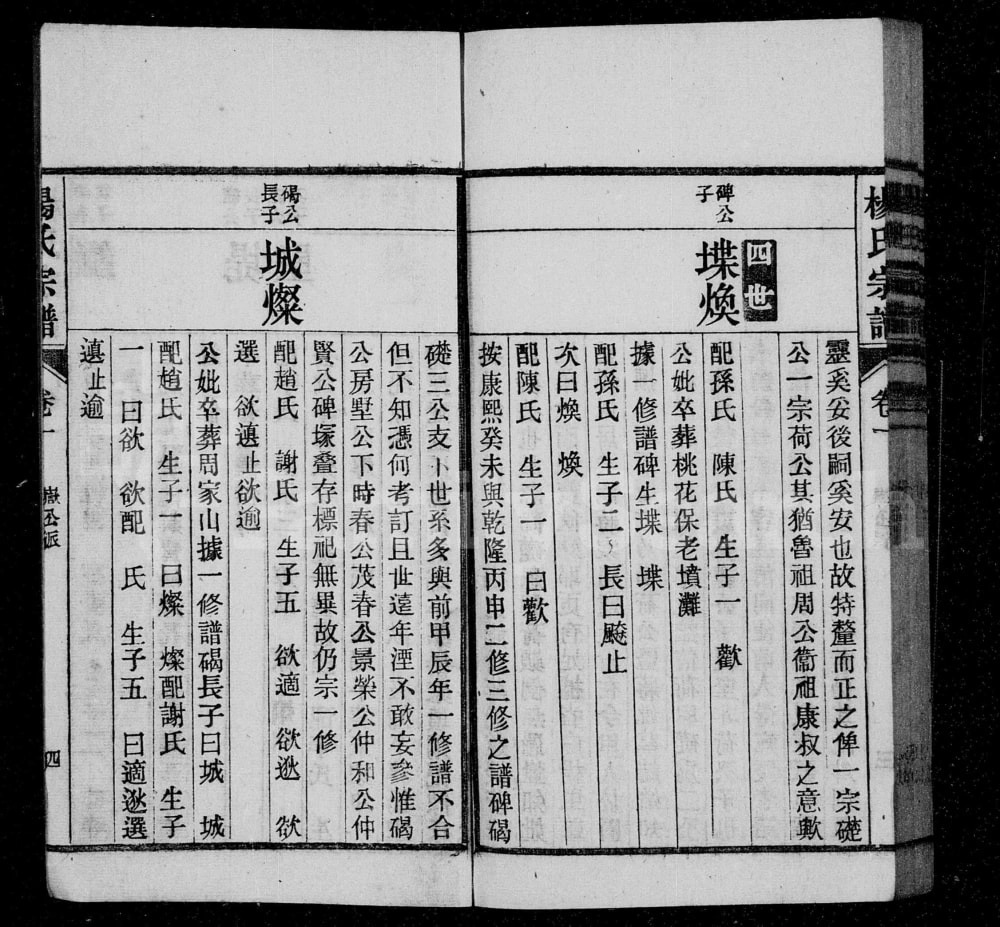 楊氏宗譜
卷一
靈奚妥後嗣奚安也故特釐而正之俾一宗礎
公一宗荷公其猶魯祖周公衞祖康叔之意歟
四世
碑公
子
堞煥
配孫氏 陳氏 生子一 歡
公妣卒葬桃花保老墳灘
據一修譜碑生堞 堞
配孫氏 生子二 長曰颷止
次曰煥 煥
配陳氏 生子一 曰歡
按康熙癸未與乾隆丙申二修三修之譜碑碣
礎三公支下世系多與前甲辰年一修譜不合
但不知憑何考訂且世遠年湮不敢妄參惟碣
公房墅公下時春公茂春公景榮公仲和公仲
賢公碑塚叠存標祀無異故仍宗一修
碣公
長子
城燦
配趙氏 謝氏 生子五 欲適 欲逖 欲
選 欲滇止欲逾
公妣卒葬周家山據一修譜碣長子曰城 城
配趙氏 生子一 曰燦 燦配謝氏 生子
一 曰欲 欲配 氏 生子五 曰適逖選
滇止逾
楊氏宗譜
卷一
公派
四